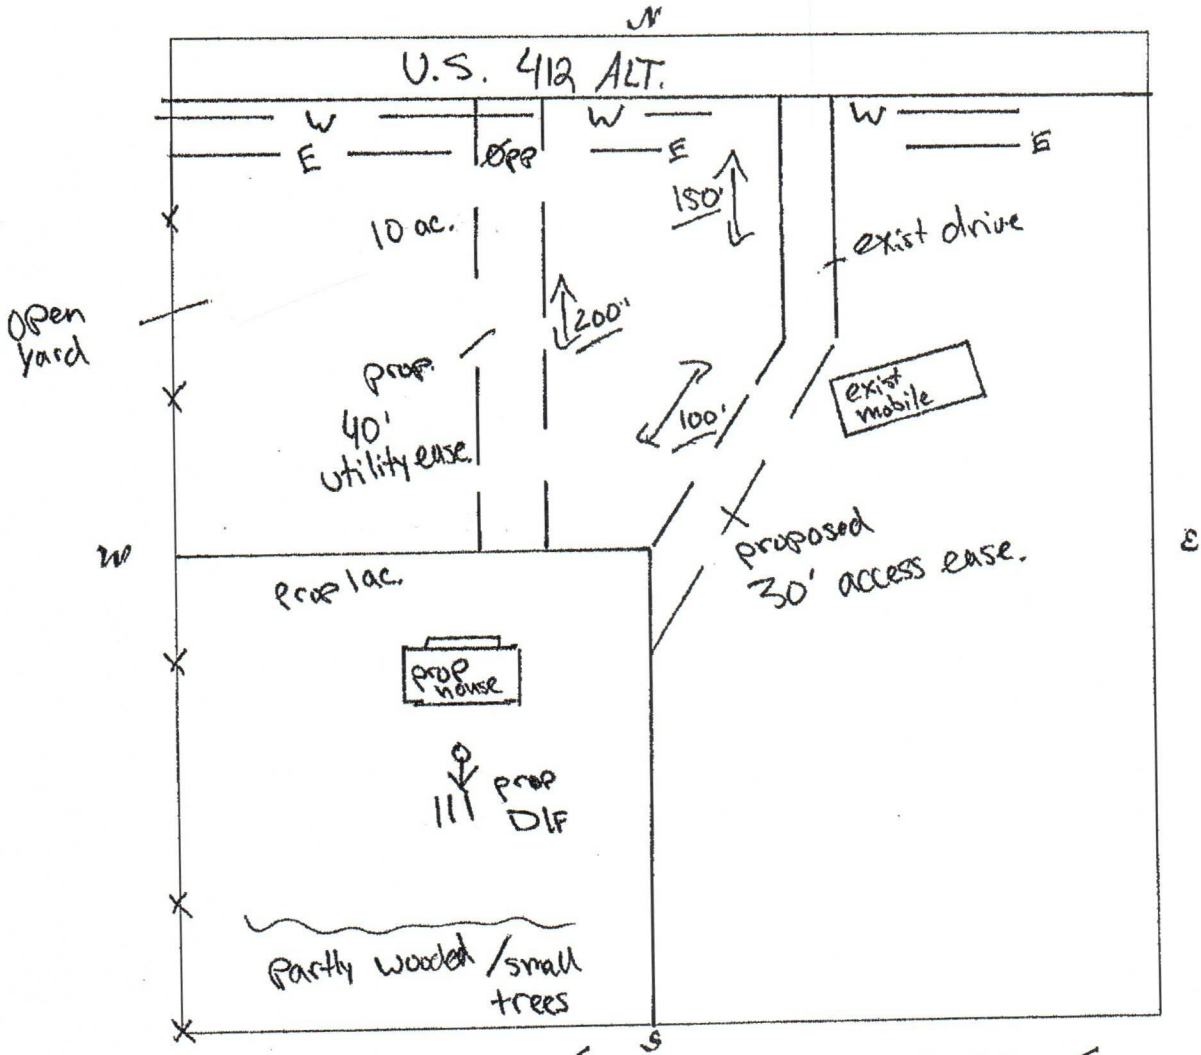 N
U.S. 412 ALT.
W
W
W
E
E
E
150'
10 ac.
exist drive
200'
open
yard
prop.
40'
utility ease.
100'
exist
mobile
W
E
proposed
30' access ease.
prop 1 ac.
prop
house
prop
D/F
partly wooded / small
trees
S